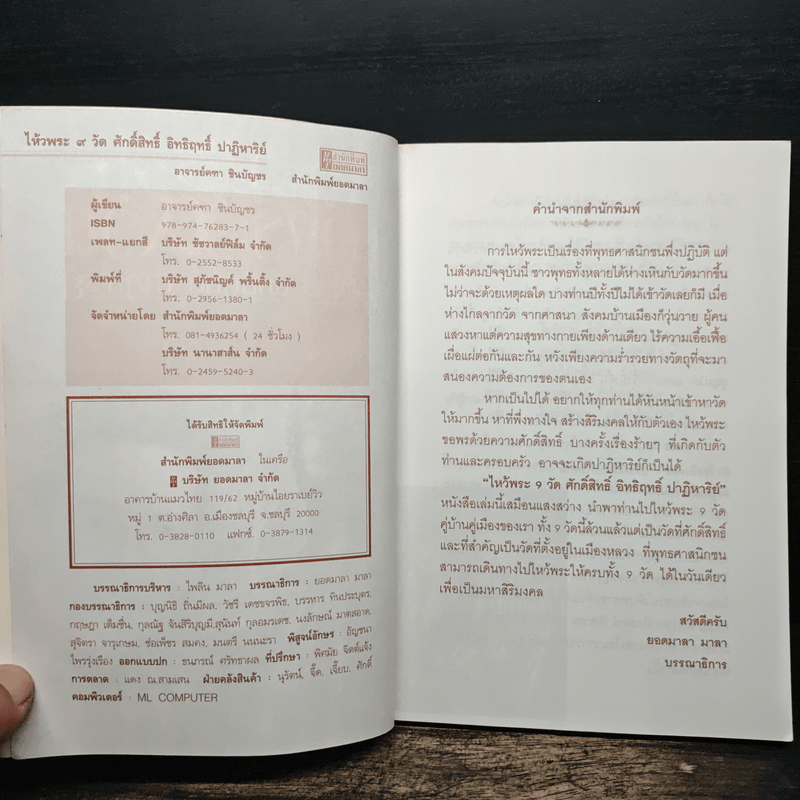 ไหว้พระ ๙ วัด ศักดิ์สิทธิ์ อิทธิฤทธิ์ ปาฏิหาริย์
อาจารย์คฑา ชินบัญชร สำนักพิมพ์ยอดมาลา
ผู้เขียน อาจารย์คฑา ชินบัญชร
ISBN 978-974-76283-7-1
เพลท-แยกสี บริษัท ชัชวาลย์ฟิล์ม จำกัด
โทร. 0-2552-8533
พิมพ์ที่ บริษัท สุภัชนิญค์ พริ้นติ้ง จำกัด
โทร. 0-2956-1380-1
จัดจำหน่ายโดย สำนักพิมพ์ยอดมาลา
โทร. 081-4936254 ( 24 ชั่วโมง )
บริษัท นานาสาส์น จำกัด
โทร. 0-2459-5240-3
ได้รับสิทธิให้จัดพิมพ์
สำนักพิมพ์ยอดมาลา ในเครือ
บริษัท ยอดมาลา จำกัด
อาคารบ้านแมวไทย 119/62 หมู่บ้านไอยราเบย์วิว
หมู่ 1 ต.อ่างศิลา อ.เมืองชลบุรี จ.ชลบุรี 20000
โทร. 0-3828-0110 แฟกซ์. 0-3879-1314
บรรณาธิการบริหาร : ไพลิน มาลา บรรณาธิการ : ยอดมาลา มาลา
กองบรรณาธิการ : บุญนิธิ ถิ่นมีผล, วัชรี เดชขจรพิช, บรรหาร ทินประบุตร,
กฤษฎา เต็มชื่น, กุลณัฐ จันสิริบุญมี,สุนันท์ กุลอมรเดช, นงลักษณ์ มาตสอาด,
สุจิตรา จารุเกษม, ช่อเพ็ชร สมคง, มนตรี นนนะรา พิสูจน์อักษร : อัญชนา
ไพรรุ่งเรือง ออกแบบปก : ธนภรณ์ ศรัทธาผล ที่ปรึกษา : พิศมัย จิตต์แจ้ง
การตลาด : แดง ณ.สามเสน ฝ่ายคลังสินค้า : นุรัตน์, จี๊ด, เจี๊ยบ, ศักดิ์
คอมพิวเตอร์ : ML COMPUTER
คำนำจากสำนักพิมพ์
การไหว้พระเป็นเรื่องที่พุทธศาสนิกชนพึ่งปฏิบัติ แต่
ในสังคมปัจจุบันนี้ ชาวพุทธทั้งหลายได้ห่างเหินกับวัดมากขึ้น
ไม่ว่าจะด้วยเหตุผลใด บางท่านปีทั้งปีไม่ได้เข้าวัดเลยก็มี เมื่อ
ห่างไกลจากวัด จากศาสนา สังคมบ้านเมืองก็วุ่นวาย ผู้คน
แสวงหาแต่ความสุขทางกายเพียงด้านเดียว ไร้ความเอื้อเฟื้อ
เผื่อแผ่ต่อกันและกัน หวังเพียงความร่ำรวยทางวัตถุที่จะมา
สนองความต้องการของตนเอง
หากเป็นไปได้ อยากให้ทุกท่านได้หันหน้าเข้าหาวัด
ให้มากขึ้น หาที่พึ่งทางใจ สร้างสิริมงคลให้กับตัวเอง ไหว้พระ
ขอพรด้วยความศักดิ์สิทธิ์ บางครั้งเรื่องร้ายๆ ที่เกิดกับตัว
ท่านและครอบครัว อาจจะเกิดปาฏิหาริย์ก็เป็นได้
"ไหว้พระ 9 วัด ศักดิ์สิทธิ์ อิทธิฤทธิ์ ปาฏิหาริย์"
หนังสือเล่มนี้เสมือนแสงสว่าง นำพาท่านไปไหว้พระ 9 วัด
คู่บ้านคู่เมืองของเรา ทั้ง 9 วัดนี้ล้วนแล้วแต่เป็นวัดที่ศักดิ์สิทธิ์
และที่สำคัญเป็นวัดที่ตั้งอยู่ในเมืองหลวง ที่พุทธศาสนิกชน
สามารถเดินทางไปไหว้พระให้ครบทั้ง 9 วัด ได้ในวันเดียว
เพื่อเป็นมหาสิริมงคล
สวัสดีครับ
ยอดมาลา มาลา
บรรณาธิการ